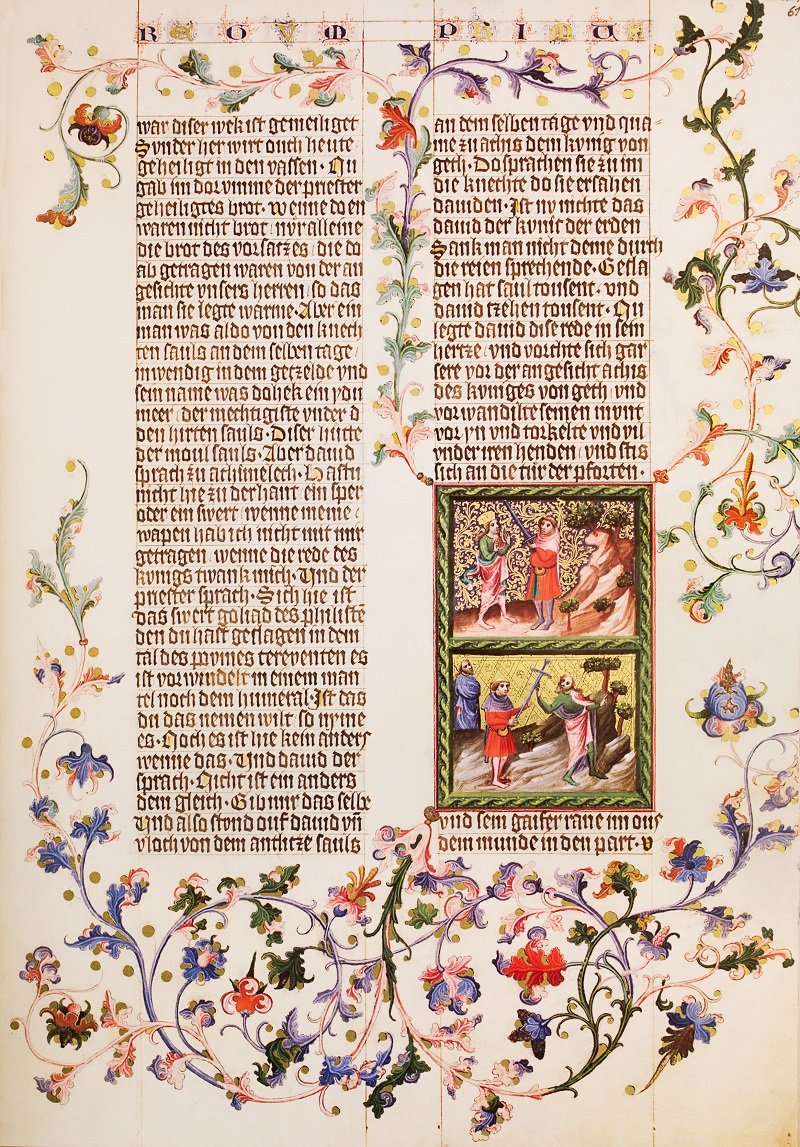 REGVM PRIMUS
67
war diser wek ist gemeiliget
Sunder her wirt ouch heute
geheiligt in den vassen · Nu
gab im dorumme der priester
geheiligtes brot · wenne do en
waren nicht brot · nyr alleine
die brot des vorsatzes die do
ab getragen waren von der an
gesichte unsers herren so das
man sie legte warme · Aber ein
man was aldo von den knech
ten sauls an dem selben tage
inwendig in dem getzelde und
sein name was dohek ein ydu
meer der mechtigiste vnder d
den hirten sauls · Diser hutte
der moul sauls · Aber dauid
sprach zu achimelech · Hastu
nicht hie zu der hant ein sper
oder ein swert wenne meine
wapen hab ich nicht mit mir
getragen wenne die rede des
kvnigs twank mich · Vnd der
priester sprach · Sich hie ist
das swert goliad des philiste
den du hast geslagen in dem
tal des pavmes terebenten es
ist vorwindelt in einem man
tel noch dem humeral · Ist das
du das nemen wilt so nyme
es · Noch es ist hie kein anders
wenne das · Vnd dauid der
sprach · Nicht ist ein anders
dem gleich · Gib mir das selbe
Vnd also stond ouf dauid vn̄
vloch von dem antlitze sauls
an dem selben tage vnd qua
me zu achis dem kvnig von
geth · Do sprachen sie zu im
die knechte do sie ersahen
dauiden · Ist ny nichte das
dauid der kvnic der erden
Sank man nicht deme durch
die reien sprechende · Gesla
gen hat saul tousent · vnd
dauid tzehen tousent · Nu
legte dauid dise rede in sein
hertze vnd vorchte sich gar
sere vor der angesicht achis
des kvniges von geth vnd
vorwandilte seinen mvnt
vor yn vnd torkelte vnd vil
vnder iren henden vnd stis
sich an die tur der pforten ·
vnd sein gaifer rane im ouf
dem munde in den part · v